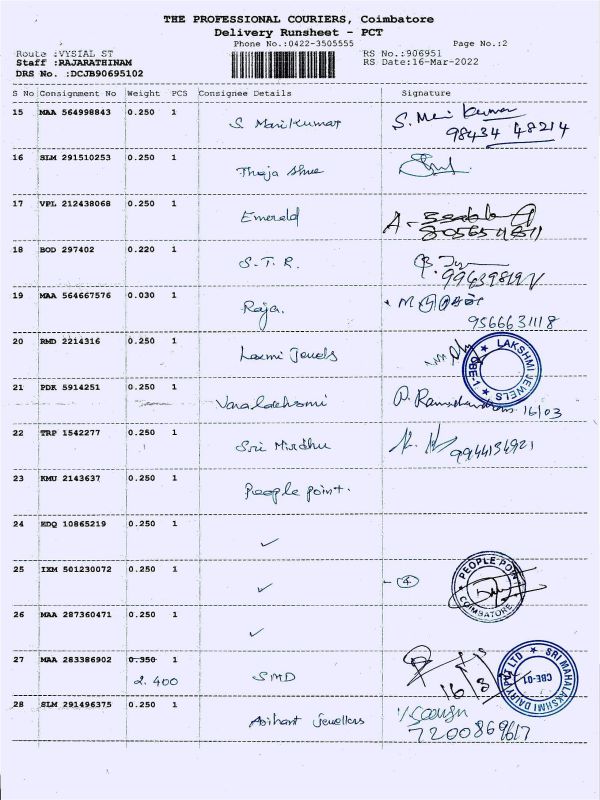 THE PROFESSIONAL COURIERS, Coimbatore
Delivery Runsheet - PCT
Phone No.:0422-3505555 Page No.:2
Route :VYSIAL ST RS No.:906951
Staff :RAJARATHINAM RS Date:16-Mar-2022
DRS No. :DCJB90695102
S No Consignment No Weight PCS Consignee Details Signature
15 MAA 564998843 0.250 1 S. Manikumar S. Mani Kumar
98434 48214
16 SLM 291510253 0.250 1 Theja Shree
17 VPL 212438068 0.250 1 Emerald A.
18 BOD 297402 0.220 1 S.T.R.
19 MAA 564667576 0.030 1 Raja.
9566631118
20 RMD 2214316 0.250 1 Laxmi Jewels LAKSHMI JEWELS CBE-1
21 PDK 5914251 0.250 1 Varalakhsmi P. Ramachandran 16/03
22 TRP 1542277 0.250 1 Sri Mirdhu 9944154921
23 KMU 2143637 0.250 1 People point.
24 EDQ 10865219 0.250 1 ✓
25 IXM 501230072 0.250 1 ✓ - 4 PEOPLE POINT COIMBATORE
26 MAA 287360471 0.250 1 ✓
27 MAA 283386902 0.350 1 SMD SRI MAHALAKSHMI DAIRY PVT LTD CBE-01
2.400 16/3
28 SLM 291496375 0.250 1 Arihant Jewellers
7200869617